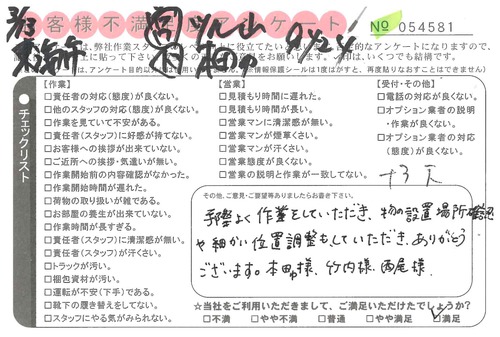 お客様不満足度アンケート
No 054581
チェックリスト
【作業】
□責任者の対応(態度)が良くない。
□他のスタッフの対応(態度)が良くない。
□作業を見ていて不安がある。
□責任者(スタッフ)に好感が持てない。
□お客様への挨拶が出来ていない。
□ご近所への挨拶・気遣いが無い。
□作業開始前の内容確認がなかった。
□作業開始時間が遅れた。
□荷物の取り扱いが雑である。
□お部屋の養生が出来ていない。
□作業時間が長すぎる。
□責任者(スタッフ)に清潔感が無い。
□責任者(スタッフ)が汗くさい。
□トラックが汚い。
□梱包資材が汚い。
□運転が不安(下手)である。
□靴下の履き替えをしてない。
□スタッフにやる気がみられない。
【営業】
□見積もり時間に遅れた。
□見積もり時間が長い。
□営業マンに清潔感が無い。
□営業マンが煙草くさい。
□営業マンが汗くさい。
□営業態度が良くない。
□営業の説明と作業が一致してない。
【受付・その他】
□電話の対応が良くない。
□オプション業者の説明
・作業が良くない。
□オプション業者の対応
(態度)が良くない。
その他、ご意見・ご要望等ありましたらお書き下さい。
手際よく作業をしていただき、物の設置場所確認
や細かい位置調整もしていただき、ありがとう
ございます。本田様、竹内様、西尾様
☆当社をご利用いただきまして、ご満足いただけたでしょうか?
□不満 □やや不満 □普通 □やや満足 ☑満足